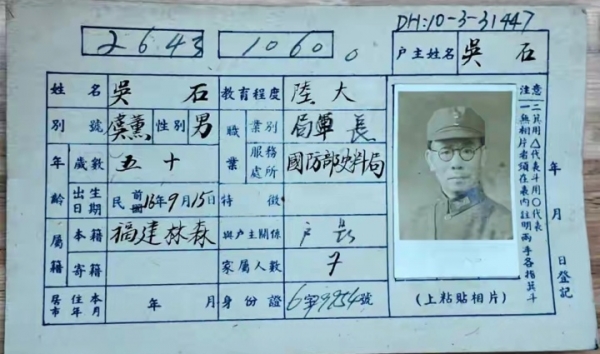 DH:10-3-31447
2643 1060。
户主姓名 吳石
姓名 吳石 教育程度 陸大
別號 虞薰 性別 男 職業 業別 局單長
年齡 歲數 五十 服務處所 國防部史料局
出生日期 民前16年9月15日 特徵
屬籍 本籍 福建林森 與户主關係 户長
寄籍 家屬人數 7
居住本市年月 年 月 身份證 6第9954號
(上粘貼相片)
注意
一無相片者須在表內註明兩手各指箕斗
二箕用△代表斗用○代表
年 月 日登記